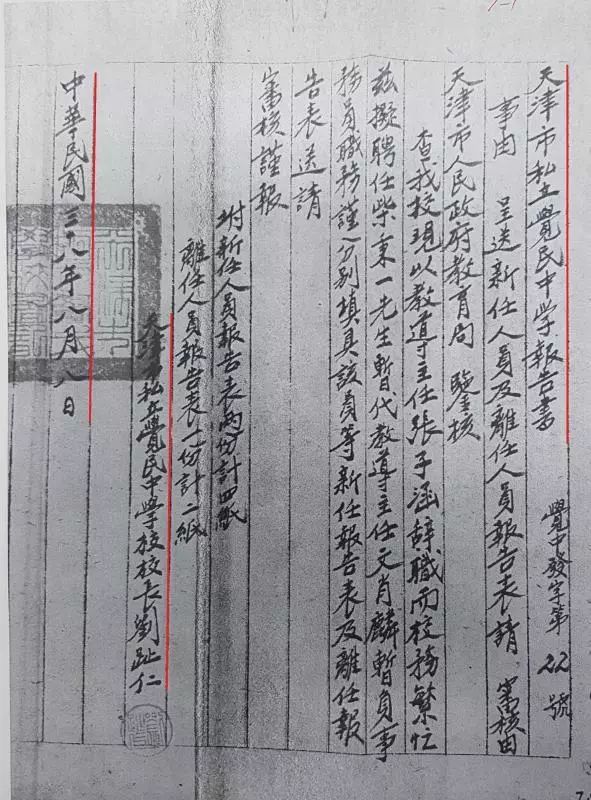 天津市私立覺民中学報告書
覺中發字第22號
事由 呈送新任人員及離任人員報告表請 審核由
天津市人民政府教育局 鑒核
查我校現以教導主任張子涵辞職而校務繁忙
茲擬聘任柴東一先生暫代教導主任 肖麟暫負事
務員職務謹分別填具該員等新任報告表及離任報
告表送請
審核謹報
附新任人員報告表兩份計四紙
離任人員報告表一份計二紙
天津市私立覺民中学校校长劉趾仁
中華民國三十八年八月八日